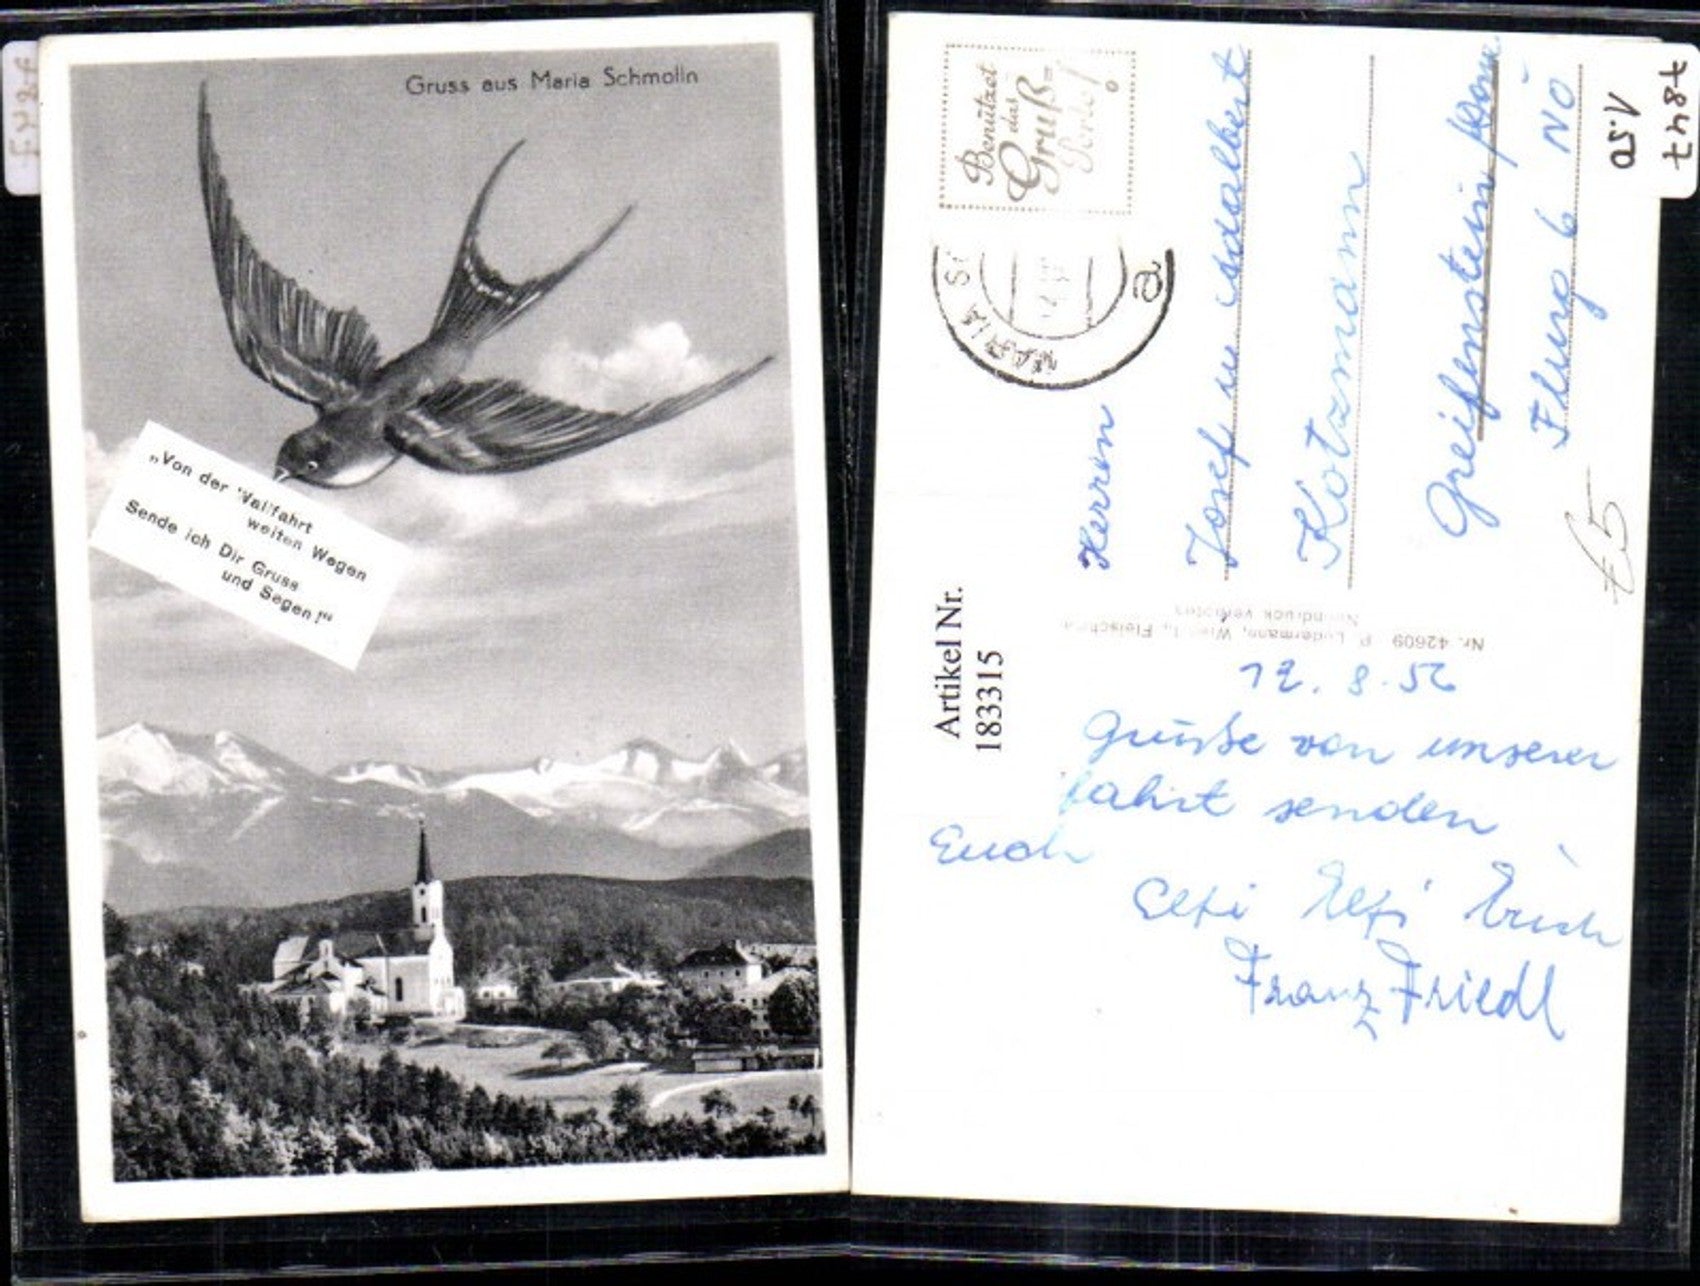 Gruss aus Maria Schmolln
„Von der Wallfahrt
weiten Wegen
Sende ich Dir Gruss
und Segen!“
Benützet
das
Gruß=
MARIA
a
Herren
Josef u Adalbert
Kotzmann
Greifenstein
6 NÖ
7847
1.50
€5
Artikel Nr.
183315
Nr. 42609 P. Ludermann, Wien I., Fleischm
Nachdruck verboten
12. 8. 56
Grüße von unserer
fahrt senden
Euch
Elfi Elfi Erich
Franz Friedl